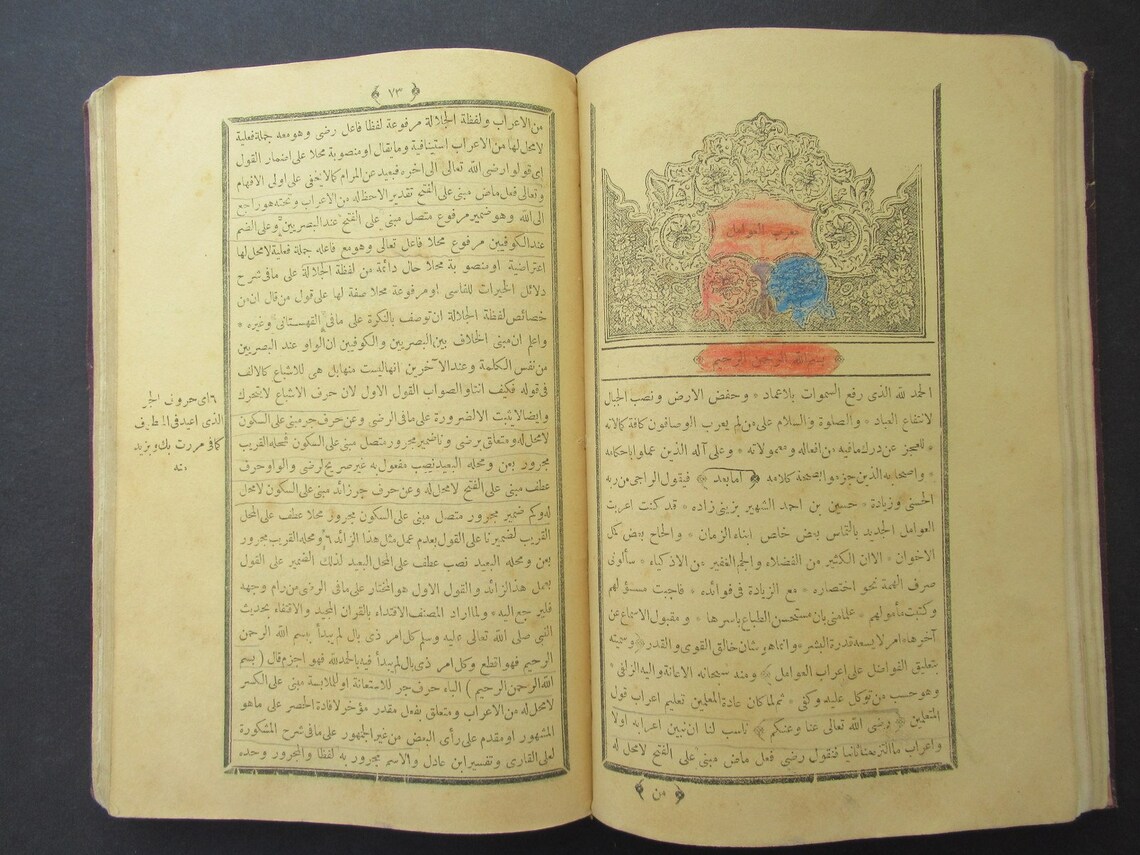 معرب العوامل
بسم الله الرحمن الرحيم
الحمد لله الذى رفع السموات بلاعماد * وخفض الارض ونصب الجبال
لانتفاع العباد * والصلوة والسلام على من لم يعرب الوصافون كافة كالاته
* للعجز عن درك مافيه من افعاله ومقولاته * وعلى آله الذين عملوا باحكامه
* واصحابه الذين جزموا بصحة كلامه ﴿ امابعد ﴾ فيقول الراجى من ربه
الحسنى وزيادة * حسين بن احمد الشهير بزينى زاده * قد كنت اعربت
العوامل الجديد بالتماس بعض خاص ابناء الزمان * والحاح بعض كمل
الاخوان * الاان الكثير من الفضلاء والجم الغفير من الاذكياء * سألونى
صرف الهمة نحو اختصاره * مع الزيادة فى فوائده * فاجبت مسؤلهم
وكتبت مأمولهم * علما منى بان مستحسن الطباع باسرها * ومقبول الاسماع عن
آخرها * امر لا يسعه قدرة البشر * وانما هو شان خالق القوى والقدر * وسميته
بتعليق الفواضل على اعراب العوامل ﴾ ومنه سبحانه الاعانة واليه الزلفى *
وهو حسب من توكل عليه وكفى * ثم لما كان عادة المعلمين تعليم اعراب قول
المتعلمين ﴿ رضى الله تعالى عنا وعنكم ﴾ ناسب لنا ان نبين اعرابه اولا
واعراب ماالتزمنا ثانيا فنقول رضى فعل ماض مبنى على الفتح لامحل له
﴿ من ﴾
﴿ ٧٣ ﴾
من الاعراب ولفظة الجلالة مرفوعة لفظا فاعل رضى وهو معه جملة فعلية
لامحل لها من الاعراب استينافية وما يقال او منصوبة محلا على اضمار القول
اى قولوا رضى الله تعالى الى اخره فبعيد عن المرام كالايخفى على اولى الافهام
وتعالى فعل ماض مبنى على الفتح تقديرا لاحظ له من الاعراب وتحته هو راجع
الى الله وهو ضمير مرفوع متصل مبنى على الفتح عند البصريين وعلى الضم
عند الكوفيين مرفوع محلا فاعل تعالى وهو مع فاعله جملة فعلية لامحل لها
اعتراضية او منصوبة محلا حال دائمة من لفظة الجلالة على مافى شرح
دلائل الخيرات للفاسى او مرفوعة محلا صفة لها على قول من قال ان من
خصائص لفظة الجلالة ان توصف بالنكرة على مافى القهستانى وغيره *
واعلم ان مبنى الخلاف بين البصريين والكوفيين ان الواو عند البصريين
من نفس الكلمة وعند الآخرين انها ليست منها بل هى للاشباع كالالف
فى قوله فكيف انتا والصواب القول الاول لان حرف الاشباع لا يتحرك
وايضا لا يثبت الالضرورة على مافى الرضى وعن حرف جر مبنى على السكون
لامحل له ومتعلق برضى ونا ضمير مجرور متصل مبنى على السكون فمحله القريب
مجرور بعن ومحله البعيد نصب مفعول به غير صريح لرضى والواو حرف
عطف مبنى على الفتح لامحل له وعن حرف جر زائد مبنى على السكون لامحل
له وكم ضمير مجرور متصل مبنى على السكون مجرور محلا عطف على المحل
القريب لضمير نا على القول بعدم عمل مثل هذا الزائد ٦ ومحله القريب مجرور
بعن ومحله البعيد نصب عطف على المحل البعيد لذلك الضمير على القول
بعمل هذا الزائد والقول الاول هو المختار على مافى الرضى من رام وجهه
فليرجع اليه * ولما اراد المصنف الاقتداء بالقران المجيد والاقتفاء بحديث
النبى صلى الله تعالى عليه وسلم كل امر ذى بال لم يبدأ بسم الله الرحمن
الرحيم فهو اقطع وكل امر ذى بال لم يبدأ فيه بالحمد لله فهو اجزم قال ( بسم
الله الرحمن الرحيم ) الباء حرف جر للاستعانة او للملابسة مبنى على الكسر
لامحل له من الاعراب ومتعلق بفعل مقدر مؤخر لافادة الحصر على ماهو
المشهور او مقدم على رأى البعض من غير الجمهور على مافى شرح المشكورة
لعلى القارى وتفسير ابن عادل والاسم مجرور به لفظا والمجرور وحده
٦ اى حروف الجر
الذى اعيد فى العطف
كما فى مررت بك وبزيد
منه